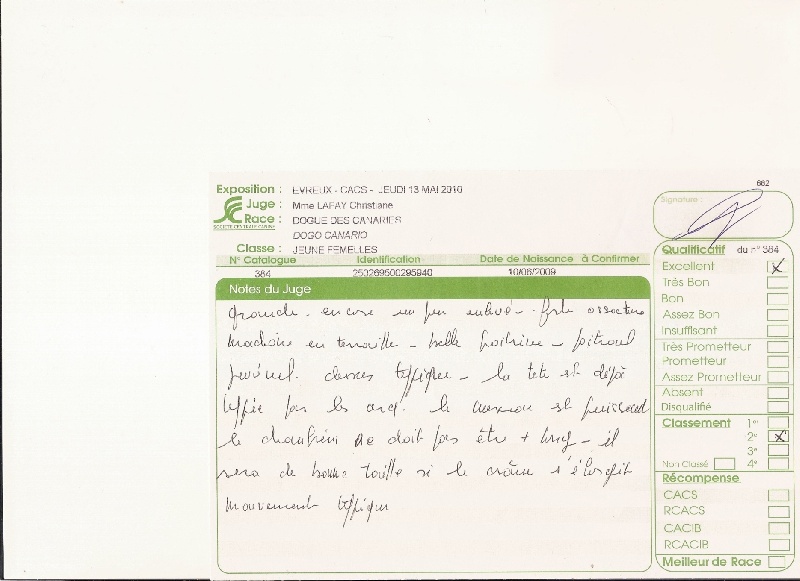 662
Exposition : EVREUX - CACS - JEUDI 13 MAI 2010
Juge : Mme LAFAY Christiane
Race : DOGUE DES CANARIES
SOCIÉTÉ CENTRALE CANINE
DOGO CANARIO
Classe : JEUNE FEMELLES
N° Catalogue Identification Date de Naissance à Confirmer
384 250269500295940 10/06/2009
Notes du Juge
grande - encore un peu enlevé - forte ossature
machoire en tenaille - belle poitrine - poitrail
juvénil. dessus typique - la tete est déjà
typée par les arq. le museau est puissant
le chanfrein ne doit pas être + long - il
sera de bonne taille si le crâne s'élargit
mouvement typique
Signature :
Qualificatif du n° 384
Excellent X
Très Bon
Bon
Assez Bon
Insuffisant
Très Prometteur
Prometteur
Assez Prometteur
Absent
Disqualifié
Classement 1er
2e X
3e
Non Classé 4e
Récompense
CACS
RCACS
CACIB
RCACIB
Meilleur de Race